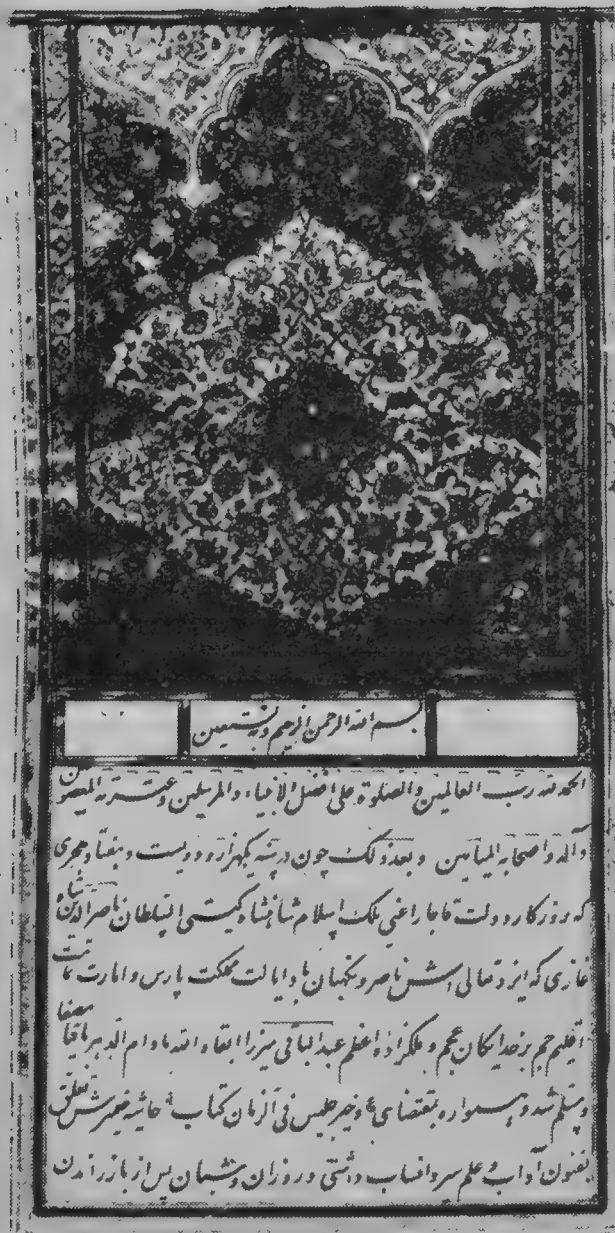 بسم الله الرحمن الرحیم وبه نستعین
الحمد لله رب العالمین والصلوة علی افضل الانبیاء والمرسلین وعترته المعصومین
وآله واصحابه المیامین وبعد ذلک چون در سنه یکهزار و دویست و هفتاد هجری
که روزگار دولت قاجار اعنی ملک اسلام شاهنشاه گیتی السلطان ناصرالدین شاه
غازی که ایزد تعالی اش ناصر و نگهبان باد ایالت مملکت پارس و امارت تمامت
اقلیم جم بر خدایگان عجم و ملکزاده اعظم عبدالباقی میرزا ابقاه الله مادام الدهر باقیا
و مسلم شد و همواره بمقتضای وخیر جلیس فی الزمان کتاب خاطر ضمیرش تعلق
بفنون آداب و علم سیر و انساب داشتی و روزان و شبان پس از باز راندن